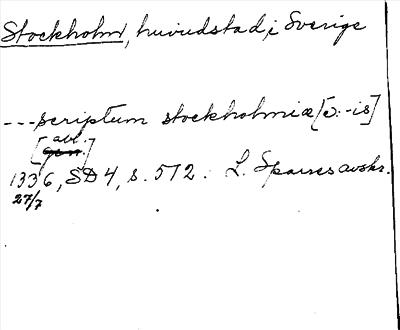 Stockholm, huvudstad i Sverige
---scriptum stockholmiæ [ɔ: -is]
[abl. gen.]
1336, SD 4, s. 572. L. Sparres avskr.
27/7